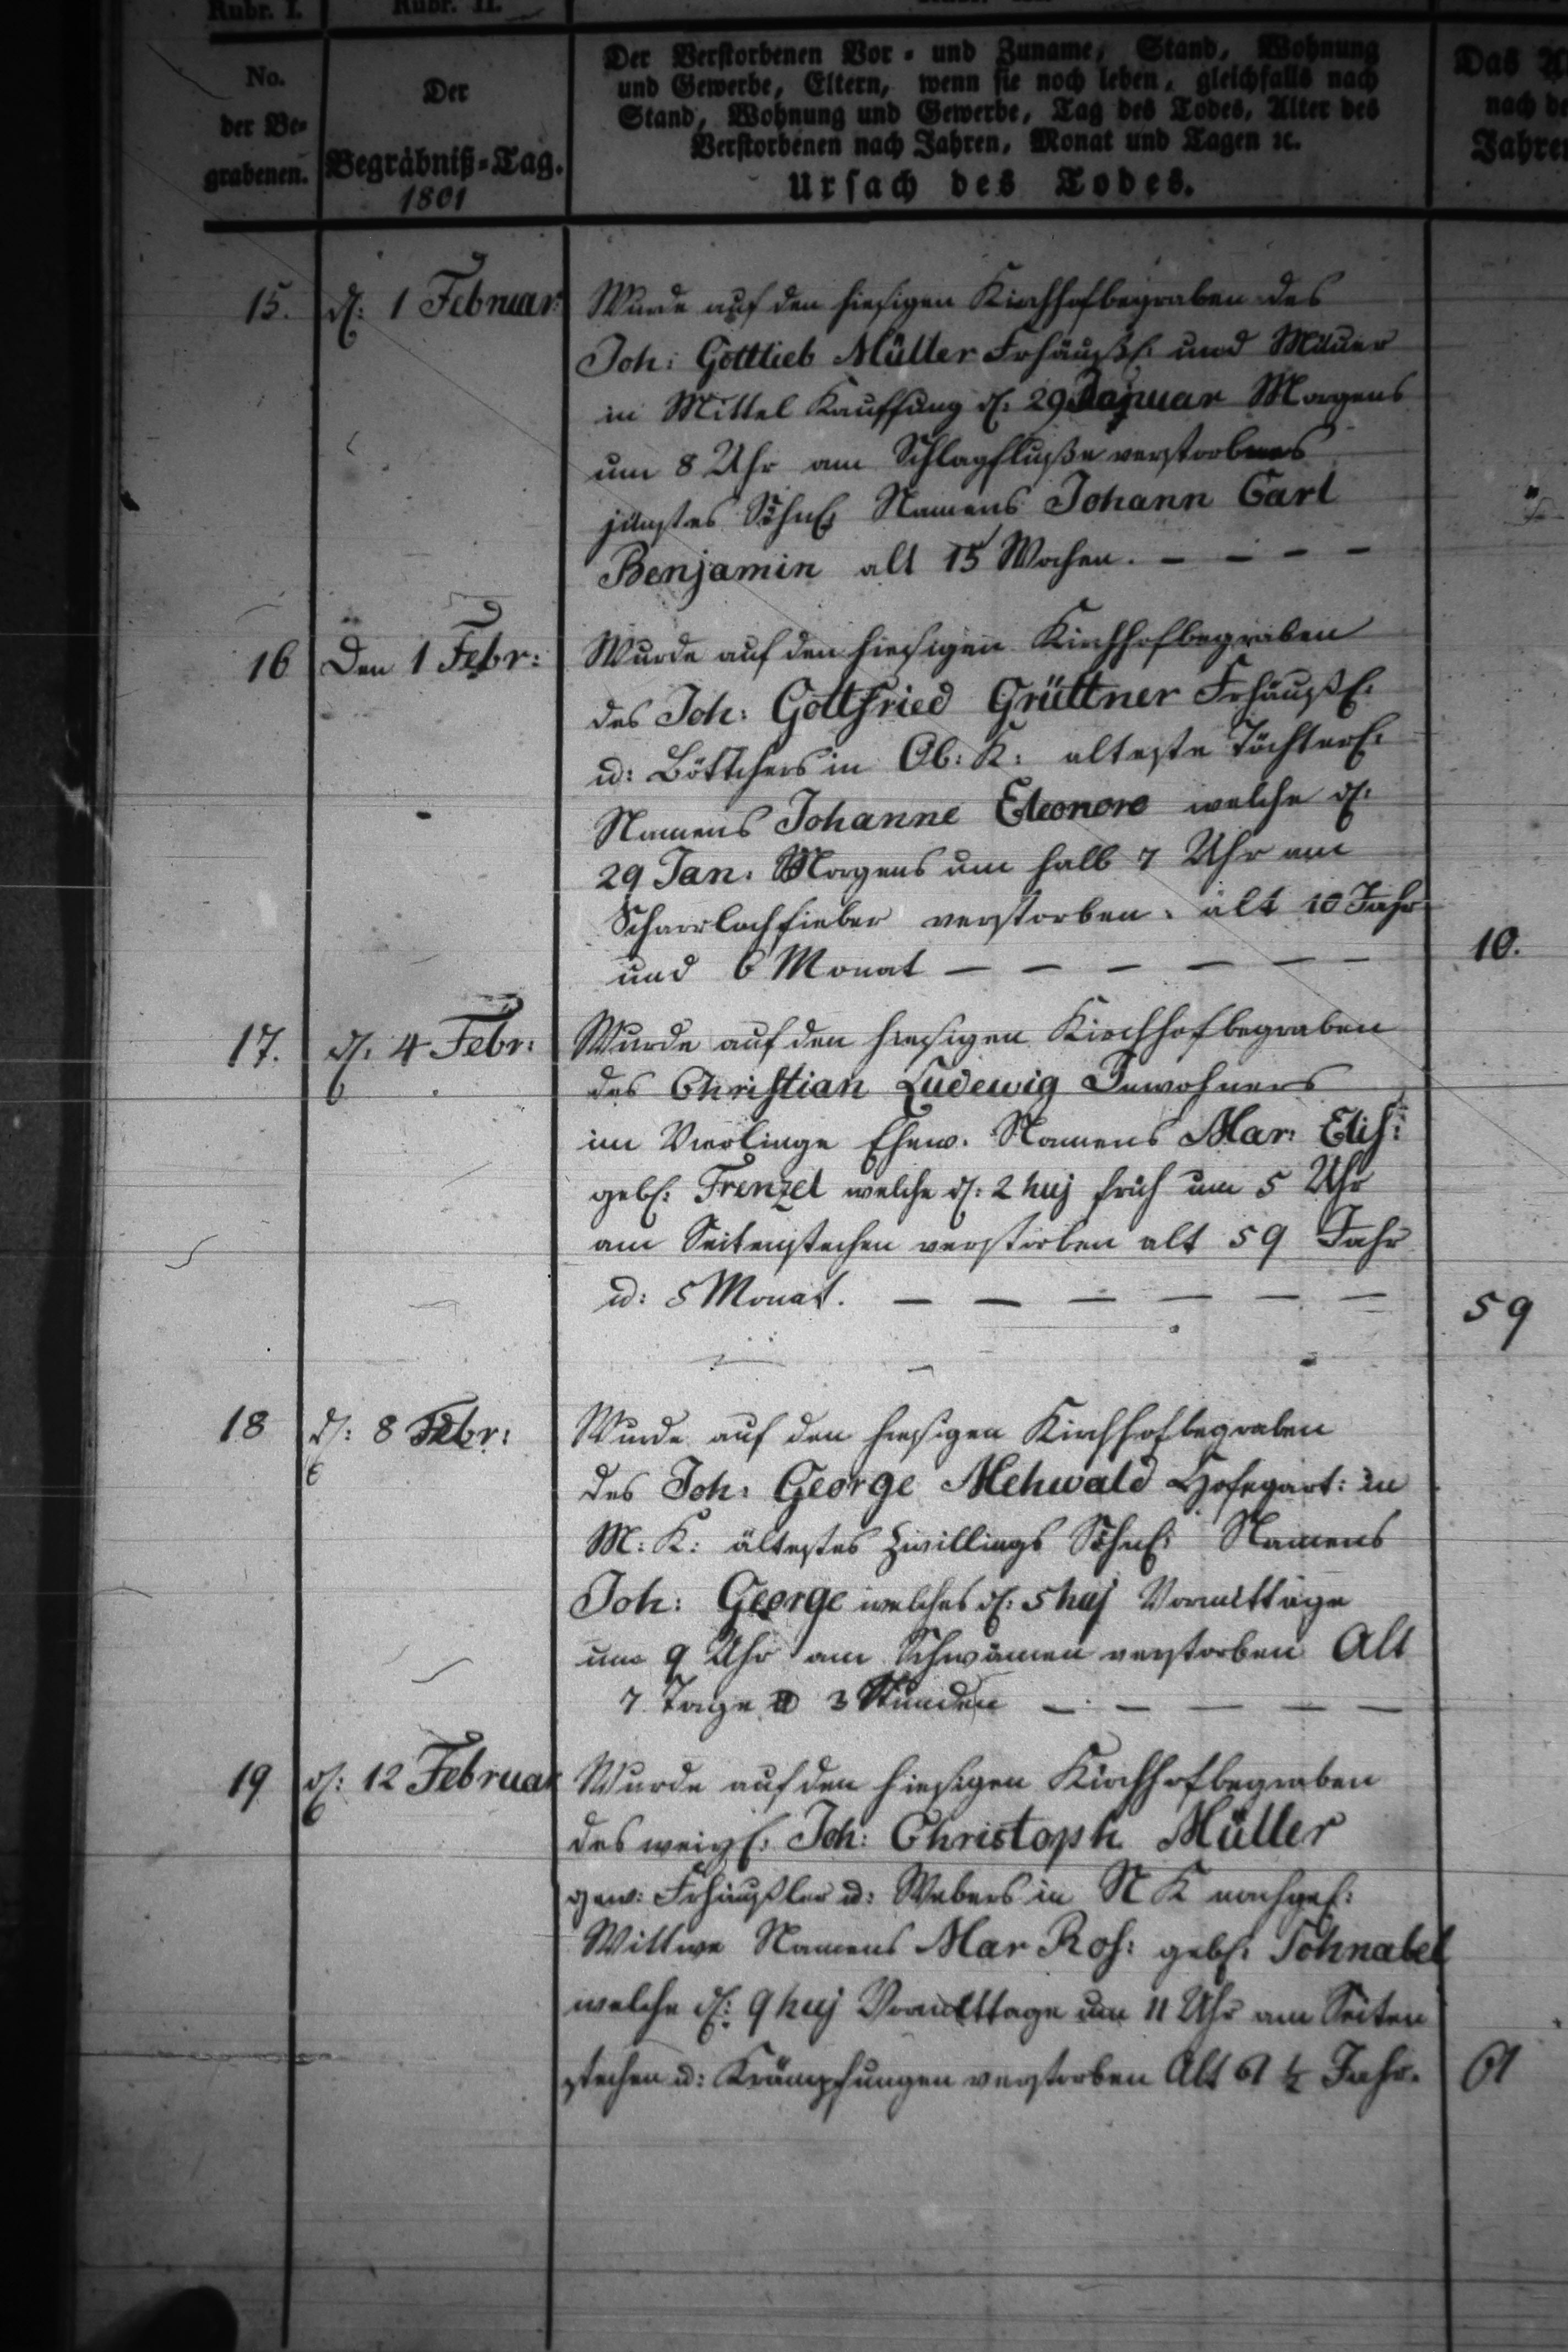 Rubr. I. Rubr. II.
No. der Be= grabenen.
Der Begräbniß=Tag.
1801
Der Verstorbenen Vor = und Zuname, Stand, Wohnung
und Gewerbe, Eltern, wenn sie noch leben, gleichfalls nach
Stand, Wohnung und Gewerbe, Tag des Todes, Alter des
Verstorbenen nach Jahren, Monat und Tagen ꝛc.
Ursach des Todes.
Das
nach
Jahre
15. d: 1 Februar: Wurde auf den hiesigen Kirchhof begraben des
Joh: Gottlieb Müller Frhäußl: und Mäuer
in Mittel Kauffung d: 29 Januar Morgens
um 8 Uhr am Schlagfluße verstorbnes
jüngstes Söhnl: Namens Johann Carl
Benjamin alt 15 Wochen. – – – –
16 Den 1 Febr: Wurde auf den hiesigen Kirchhof begraben
des Joh: Gottfried Grüttner Frhäußl:
u: Böttchers in Ob: K: alteste Töchterl:
Namens Johanne Eleonore welche d:
29 Jan: Morgens um halb 7 Uhr am
Scharlachfieber verstorben. alt 10 Jahr
und 6 Monat – – – – – – 10.
17. d: 4 Febr: Wurde auf den hiesigen Kirchhof begraben
des Christian Ludewig Inwohners
im Vierlinge Ehew. Namens Mar: Elis:
gebl: Frenzel welche d: 2 huj früh um 5 Uhr
am Seitenstechen verstorben alt 59 Jahr
u: 5 Monat. – – – – – – 59
18 d: 8 Febr: Wurde auf den hiesigen Kirchhof begraben
des Joh: George Mehwald Hofegärt: in
M: K: ältestes Zwillings Söhnl: Namens
Joh: George welches d: 5 huj Vormittage
um 9 Uhr am Schwämen verstorben Alt
7 Tage u 3 Stunden – – – – –
19 d: 12 Februar Wurde auf den hiesigen Kirchhof begraben
des weyl: Joh: Christoph Müller
gew: Frhäußler u: Webers in N K nachgel:
Wittwe Namens Mar Ros: gebl: Schnabel
welche d: 9 huj Vormittage um 11 Uhr am Seiten
stechen u: Krämpfungen verstorben Alt 61 ½ Jahr. 61